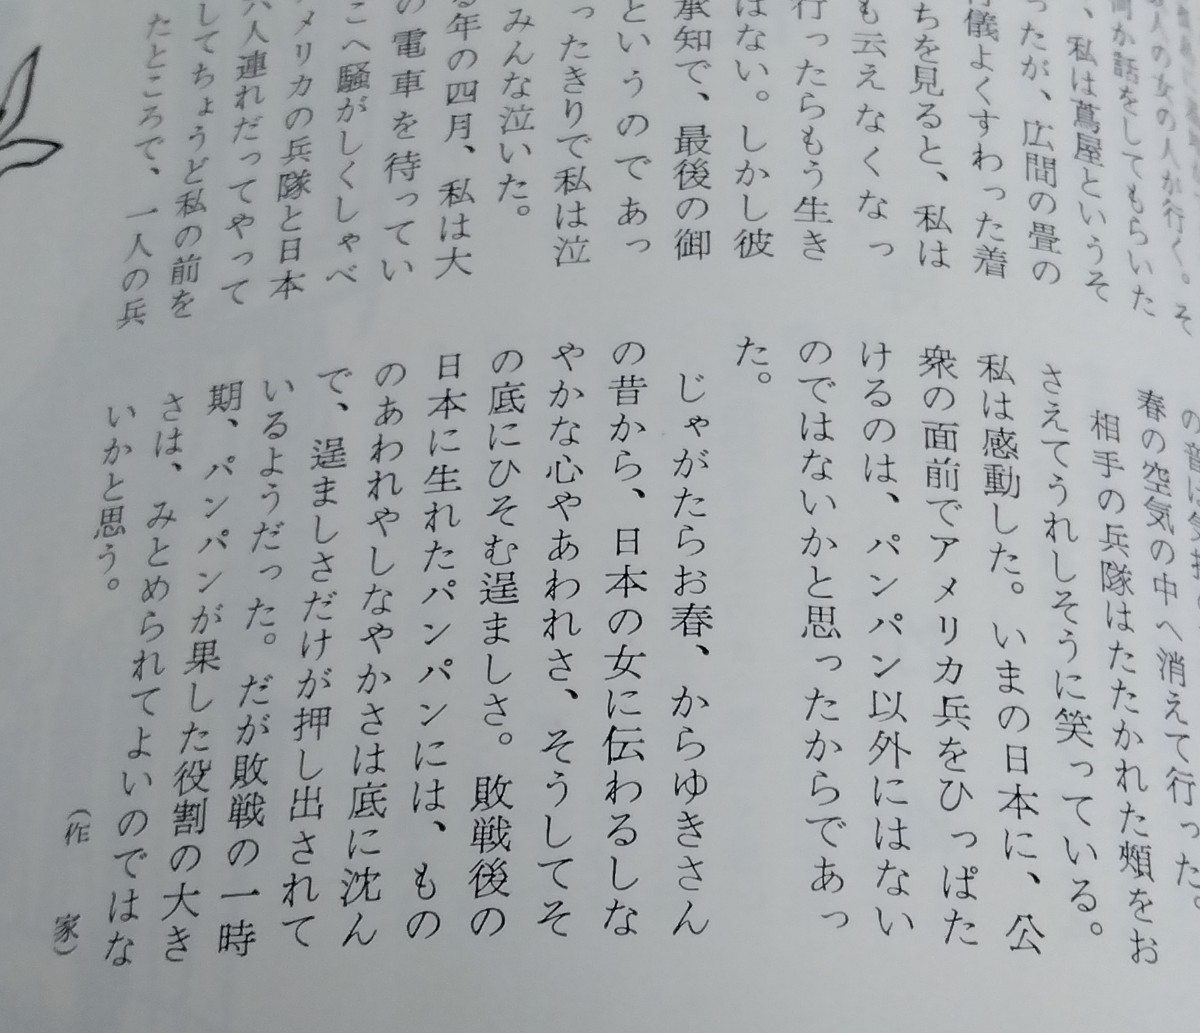 人の女の人が行く。そ
間か話をしてもらいた
、私は蔦屋というそ
ったが、広間の畳の
儀よくすわった着
ちを見ると、私は
も云えなくなっ
行ったらもう生き
はない。しかし彼
承知で、最後の御
というのであっ
ったきりで私は泣
みんな泣いた。
年の四月、私は大
の電車を待ってい
こへ騒がしくしゃべ
メリカの兵隊と日本
人連れだってやって
してちょうど私の前を
たところで、一人の兵
春の空気の中へ消えて行った。
相手の兵隊はたたかれた頰をお
さえてうれしそうに笑っている。
私は感動した。いまの日本に、公
衆の面前でアメリカ兵をひっぱた
けるのは、パンパン以外にはない
のではないかと思ったからであっ
た。
じゃがたらお春、からゆきさん
の昔から、日本の女に伝わるしな
やかな心やあわれさ、そうしてそ
の底にひそむ逞ましさ。敗戦後の
日本に生れたパンパンには、もの
のあわれやしなやかさは底に沈ん
で、逞ましさだけが押し出されて
いるようだった。だが敗戦の一時
期、パンパンが果した役割の大き
さは、みとめられてよいのではな
いかと思う。
（作 家）